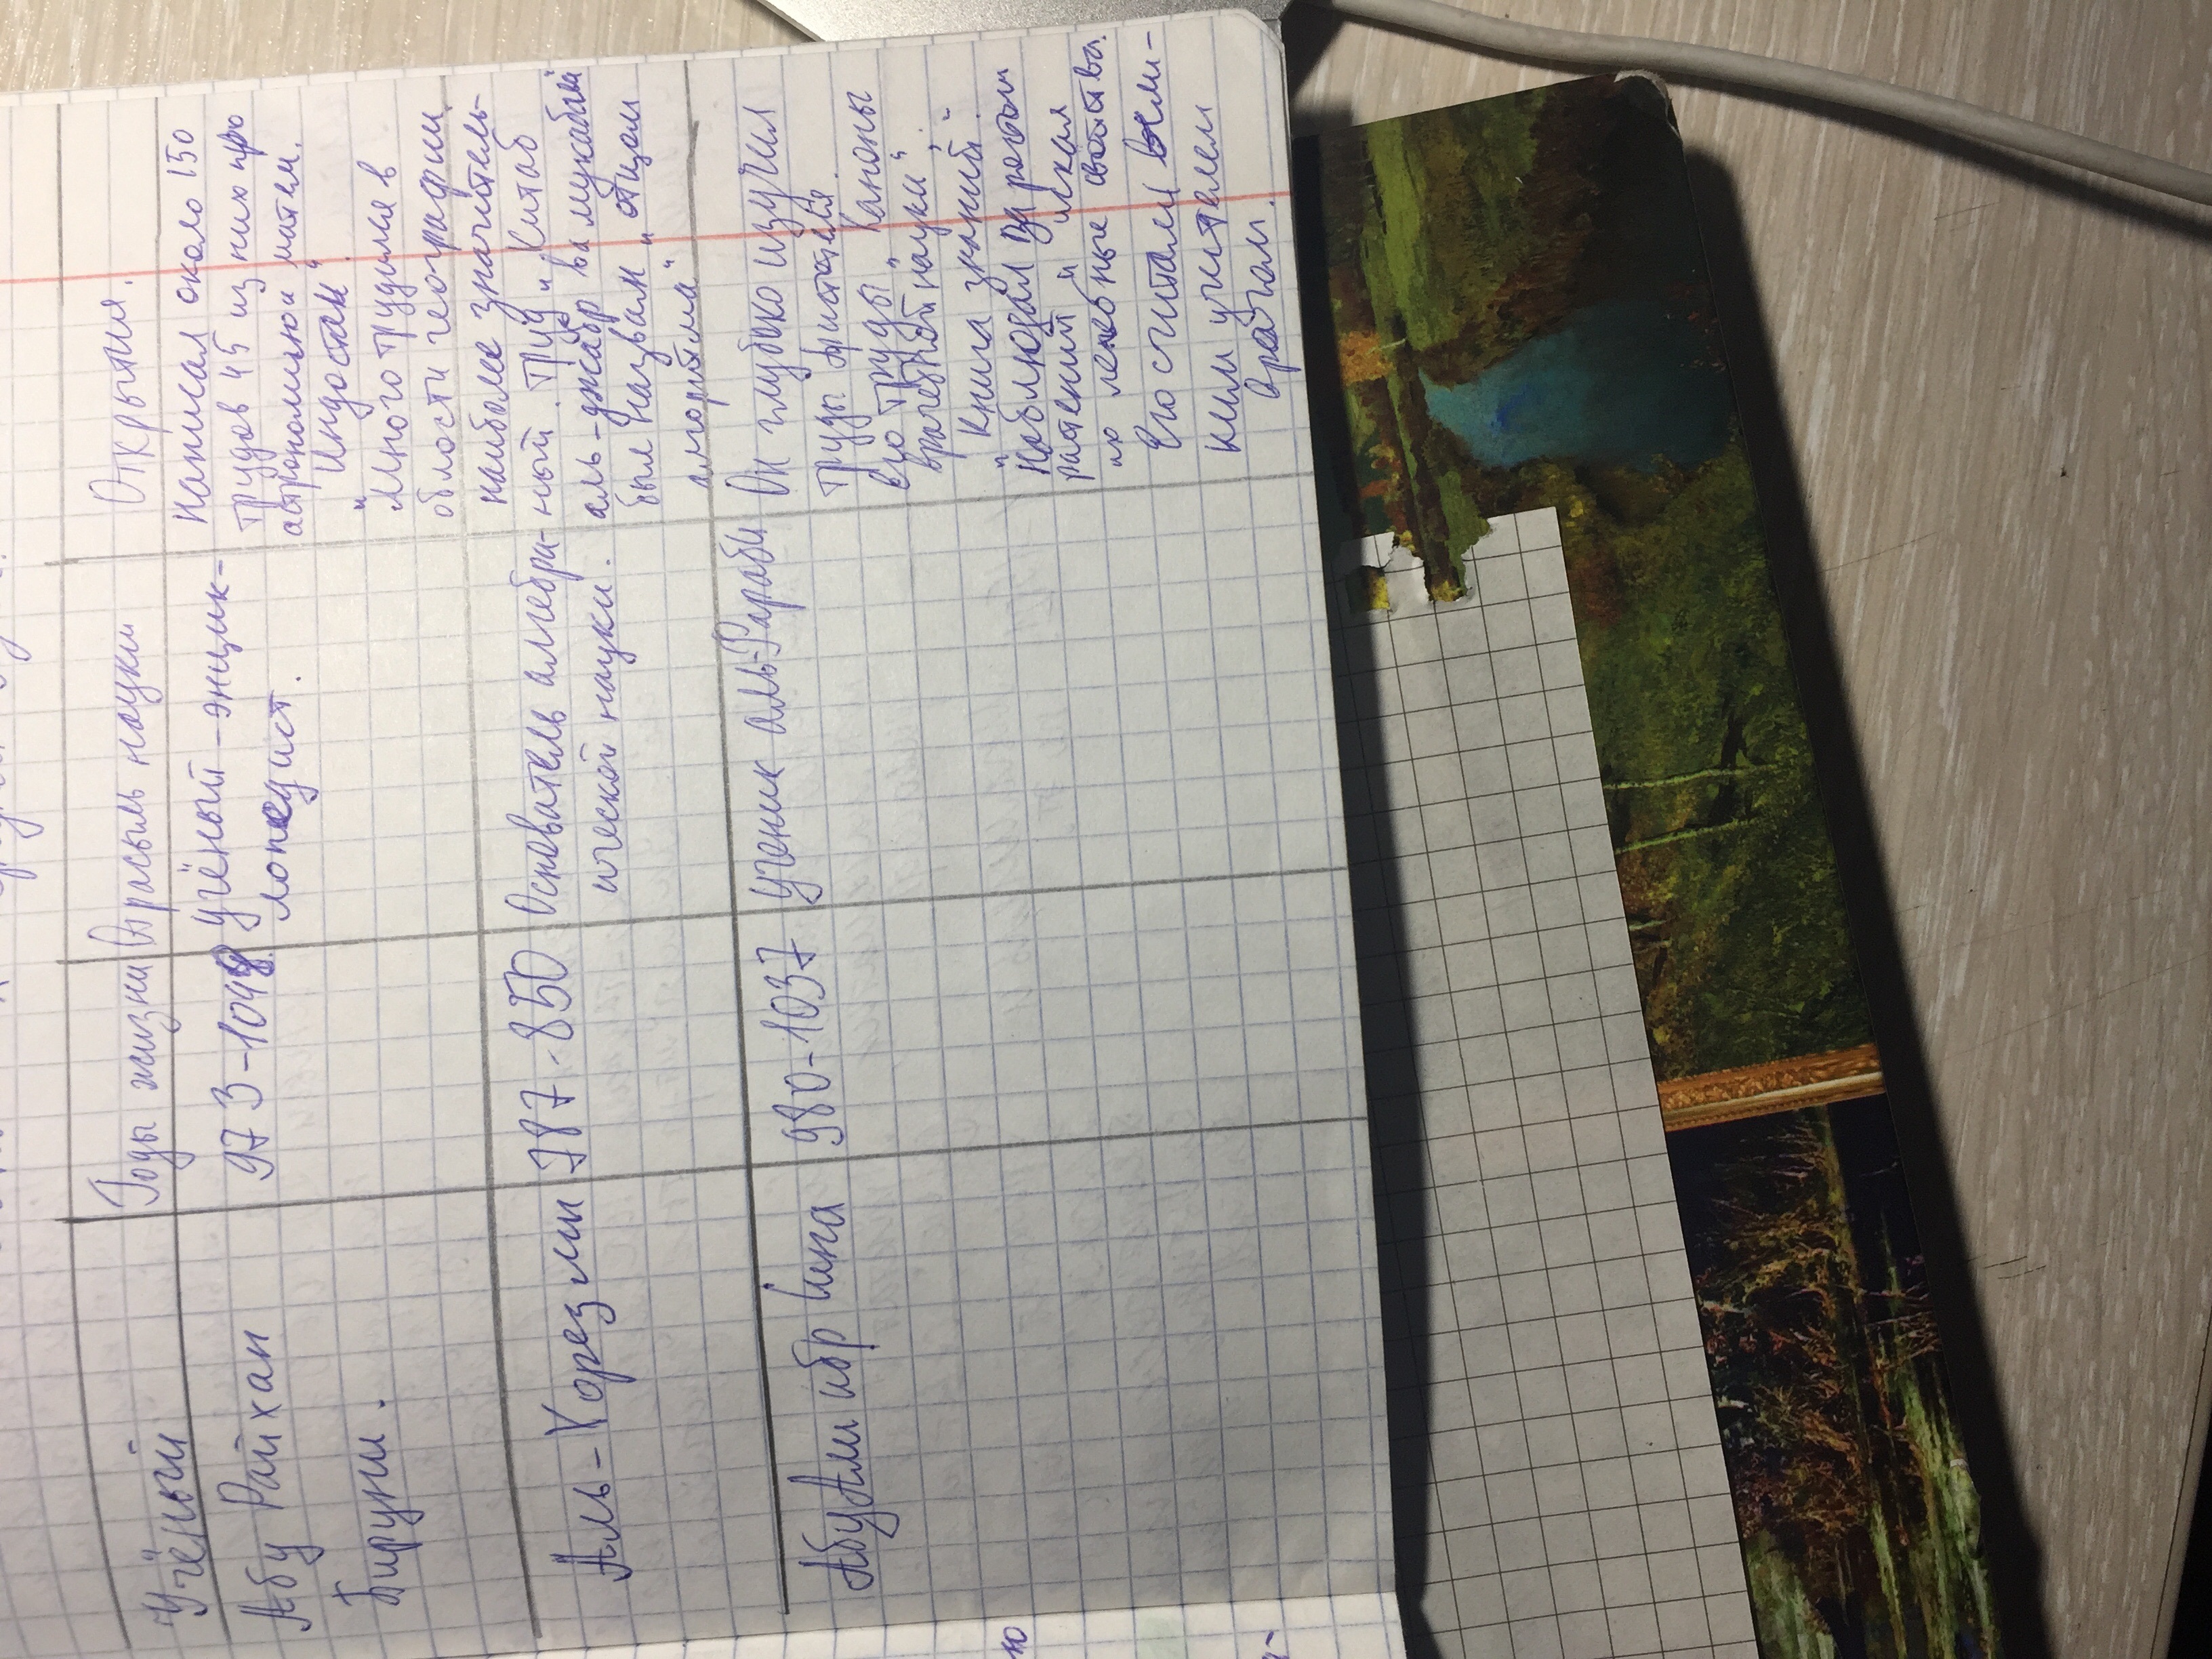 Учёный
Годы жизни
Отрасль науки
Открытия.
Абу Райхан
Бируни.
973-1048
Учёный-энцик-
лопедист.
Написал около 150
трудов 45 из них про
астрономию и матем.
"Индостан".
Много трудился в
области географии.
Аль-Хорезми
787-850
Основатель алгебра-
ической науки.
наиболее значитель-
ный труд "Китаб
аль-джабр ва мукабала"
был назван "отцом
алгоритма"
Абу Али ибр Сина
980-1037
Ученик аль-Фараби
Он глубоко изучил
труды Аристотеля.
Его труды "Каноны
врачебной науки",
"Книга знаний".
Наблюдал за ростом
растений и искал
их лекобные свойства.
Его считали вели-
ким учителем
врагом.
ю